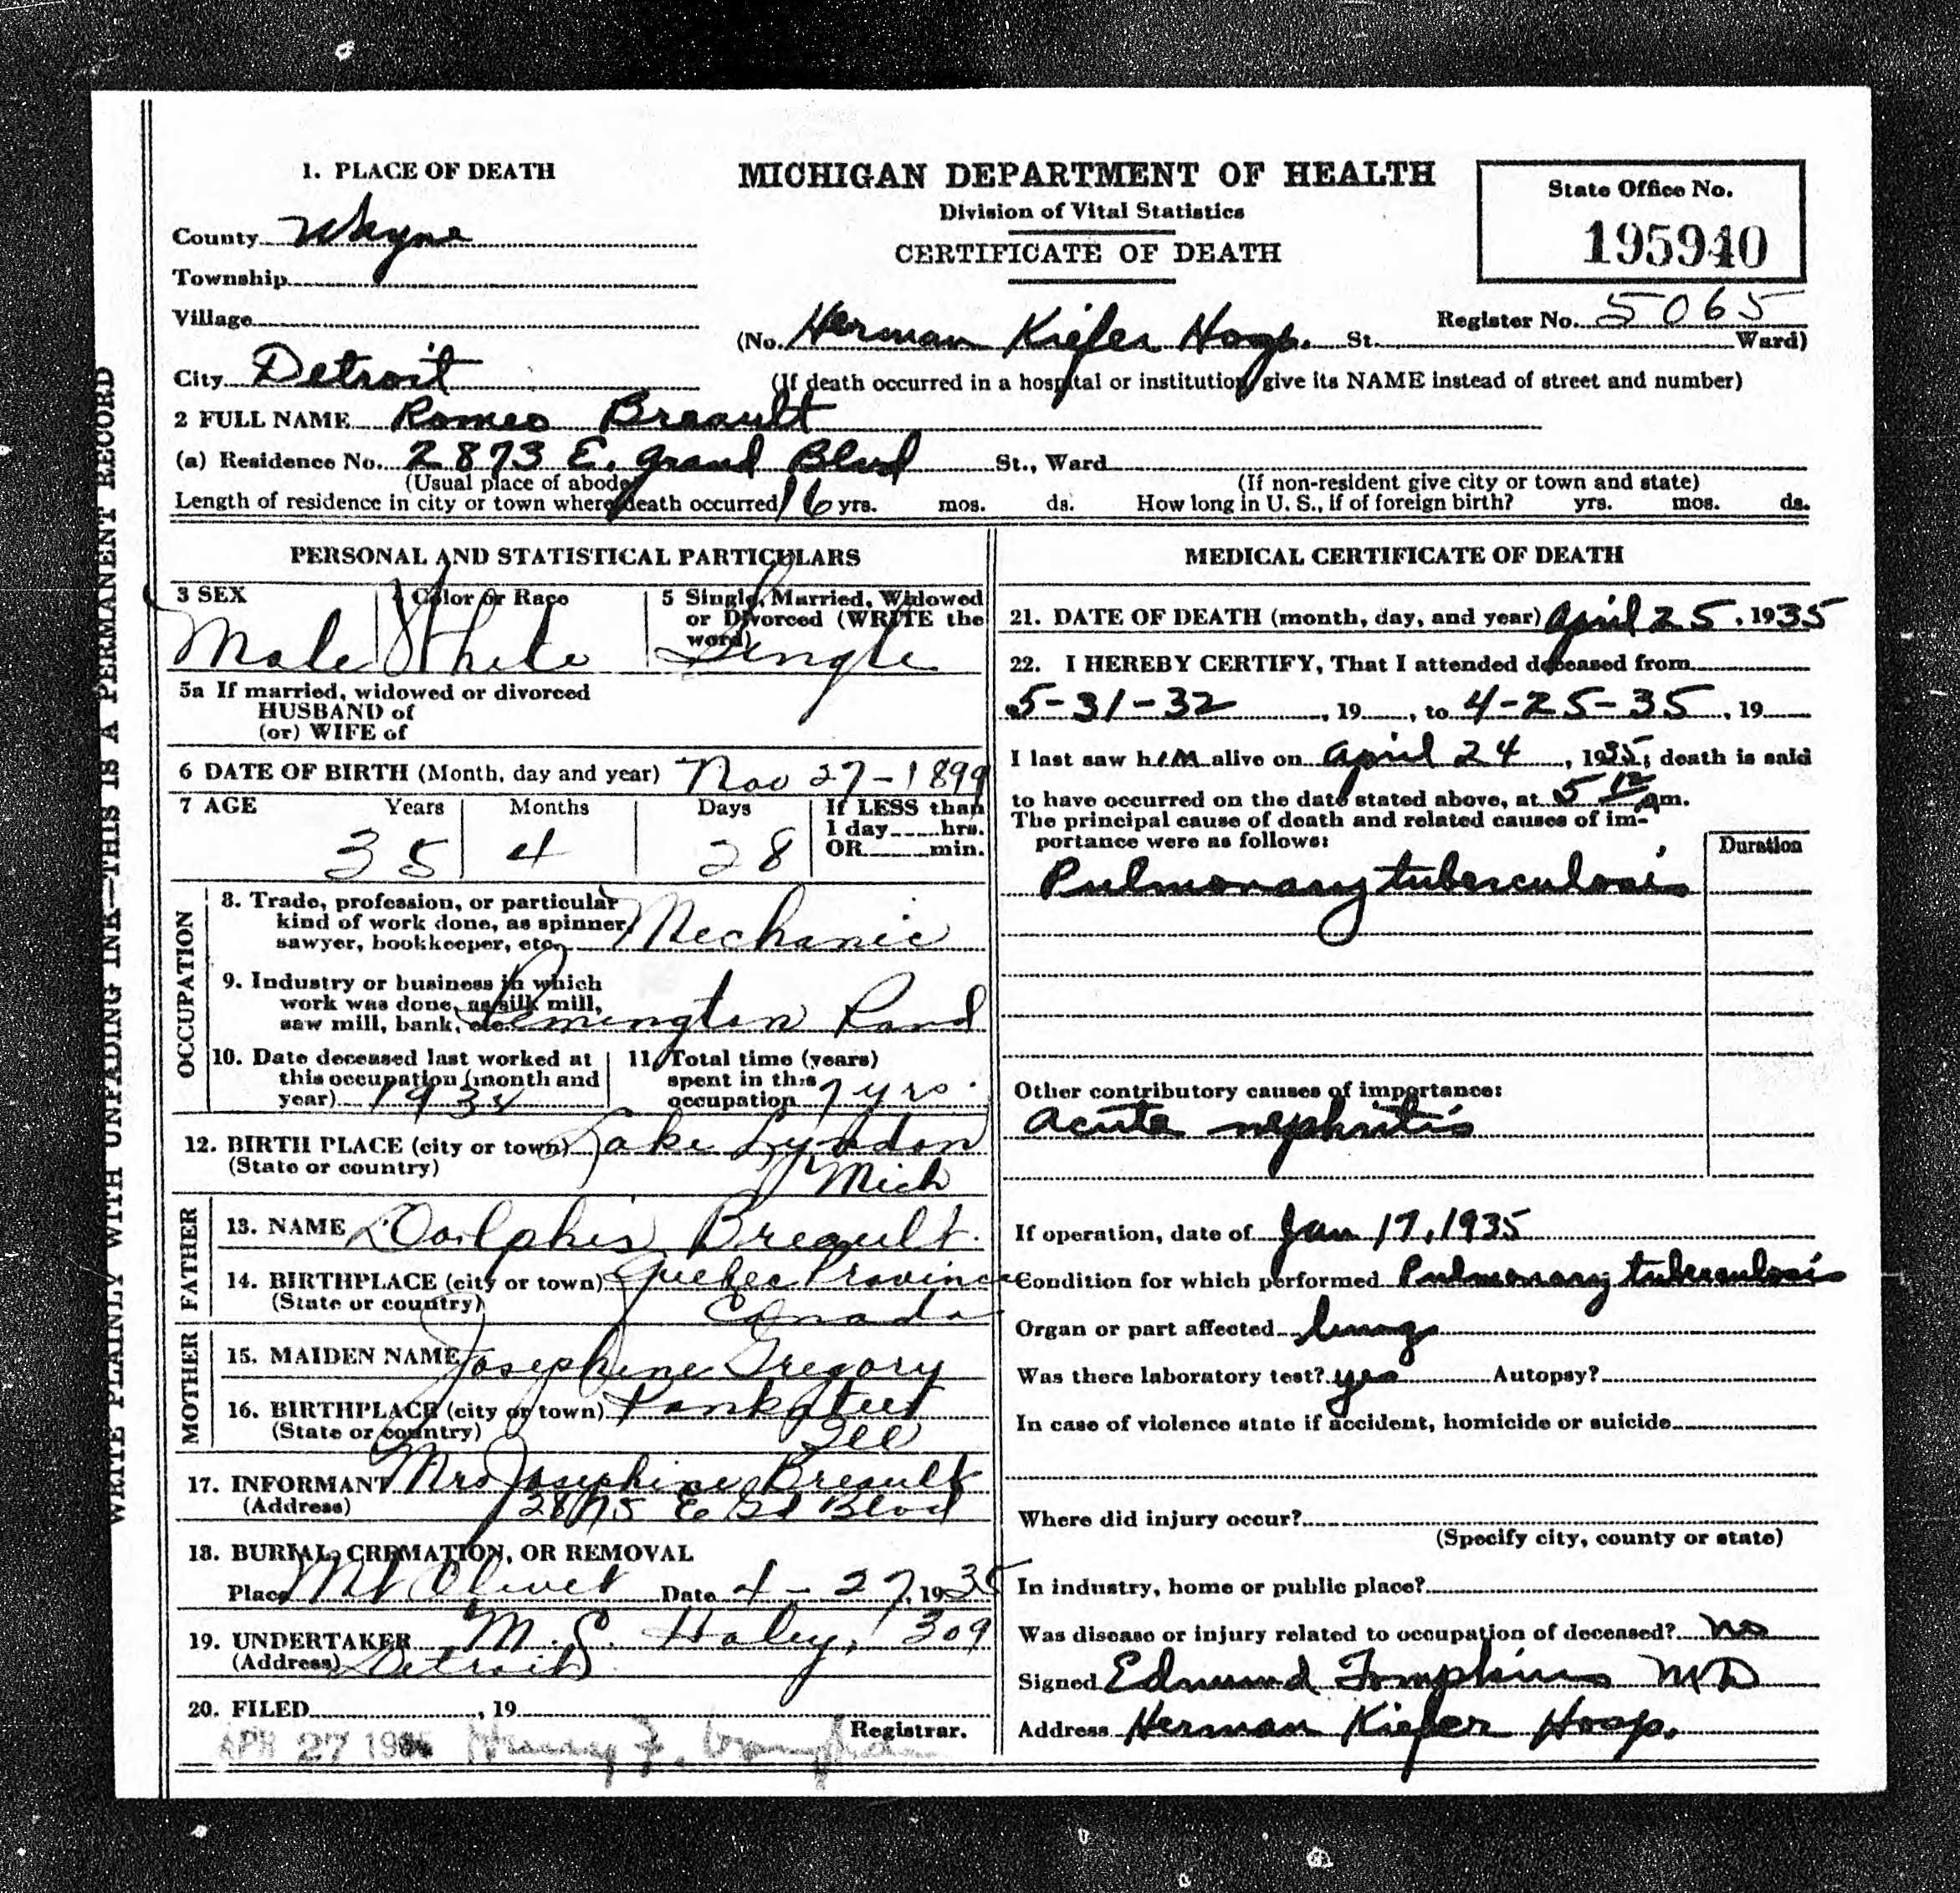 WRITE PLAINLY WITH UNFADING INK—THIS IS A PERMANENT RECORD
1. PLACE OF DEATH
County Wayne
Township
Village
City Detroit
MICHIGAN DEPARTMENT OF HEALTH
Division of Vital Statistics
CERTIFICATE OF DEATH
State Office No.
195940
Register No. 5065
(No. Herman Kiefer Hosp. St. Ward)
(If death occurred in a hospital or institution, give its NAME instead of street and number)
2 FULL NAME Romeo Breault
(a) Residence No. 2873 E. Grand Blvd St., Ward
(Usual place of abode) (If non-resident give city or town and state)
Length of residence in city or town where death occurred 16 yrs. mos. ds. How long in U. S., if of foreign birth? yrs. mos. ds.
PERSONAL AND STATISTICAL PARTICULARS
3 SEX
Male
4 Color or Race
White
5 Single, Married, Widowed
or Divorced (WRITE the
word)
Single
5a If married, widowed or divorced
HUSBAND of
(or) WIFE of
6 DATE OF BIRTH (Month, day and year) Nov 27-1899
7 AGE Years Months Days
35 4 28
If LESS than
1 day hrs.
OR min.
OCCUPATION
8. Trade, profession, or particular
kind of work done, as spinner,
sawyer, bookkeeper, etc. Mechanic
9. Industry or business in which
work was done, as silk mill,
saw mill, bank, etc. Remington Rand
10. Date deceased last worked at
this occupation (month and
year) 1934
11. Total time (years)
spent in this
occupation 7 yrs.
12. BIRTH PLACE (city or town) Lake Lyndon
(State or country) Mich
FATHER
13. NAME Dolphis Breault.
14. BIRTHPLACE (city or town) Quebec Province
(State or country) Canada
MOTHER
15. MAIDEN NAME Josephine Gregory
16. BIRTHPLACE (city or town)
(State or country) Ill
17. INFORMANT Mrs Josephine Breault
(Address) 2875 E Gd Blvd
18. BURIAL, CREMATION, OR REMOVAL
Place Mt Olivet Date 4-27, 1935
19. UNDERTAKER M. S. Haley, 309
(Address) Detroit
20. FILED , 19
Registrar.
APR 27 1935
MEDICAL CERTIFICATE OF DEATH
21. DATE OF DEATH (month, day, and year) April 25, 1935
22. I HEREBY CERTIFY, That I attended deceased from
5-31-32 , 19 , to 4-25-35 , 19
I last saw him alive on April 24 , 1935; death is said
to have occurred on the date stated above, at 5 12 am.
The principal cause of death and related causes of im-
portance were as follows:
Duration
Pulmonary tuberculosis
Other contributory causes of importance:
Acute nephritis
If operation, date of Jan 17, 1935
Condition for which performed Pulmonary tuberculosis
Organ or part affected lung
Was there laboratory test? yes Autopsy?
In case of violence state if accident, homicide or suicide
Where did injury occur?
(Specify city, county or state)
In industry, home or public place?
Was disease or injury related to occupation of deceased? No
Signed Edmund Tompkins MD
Address Herman Kiefer Hosp.